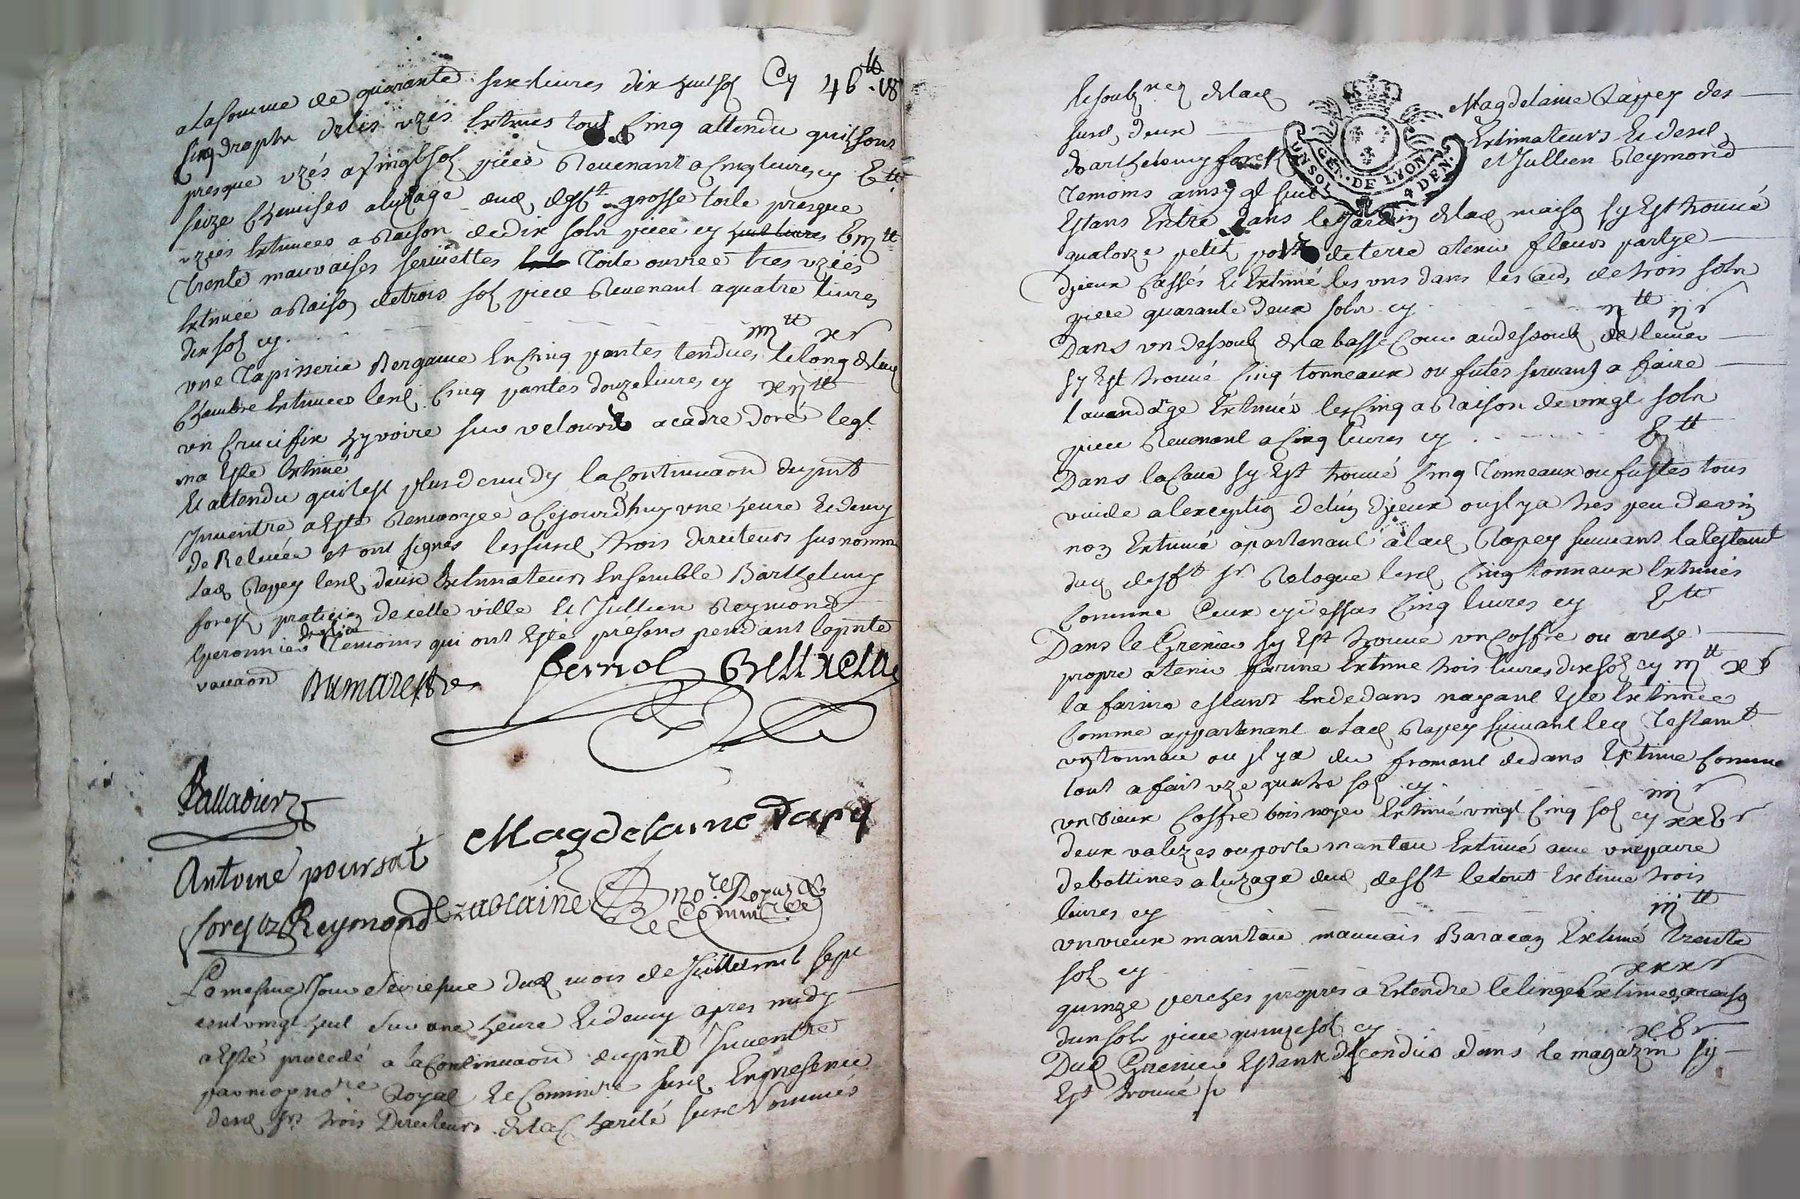 a la somme de quarante six livres dix huit sols Cy 46 tt 18
Cinq draptz de lis uzés Extimés tous Cinq attendu qu'ils sont
presque uzés a vingt sols piece Revenant a Cinq livres cy V tt
seize Chemises a l'uzage dud deff.t grosse toile presque
uzées Extimées a Raison de dix sols piece cy huit livres VIII tt
trente mauvaises serviettes toile ouvrée tres uzées
Extimée a Raison de trois sols piece Revenant a quatre livres
dix sols cy. iiii tt x s
une Tapisserie Bergame En Cinq pantes tendues le long de lad
Chambre Extimées lesd Cinq pantes douze livres cy xij tt
un Crucifix hyvoire sur velours a cadre doré leql
na Esté Extimé
Et attendu qu'il est plus de midy la Continuaon du pnt
Inventre a Esté Renvoyee a Cejourdhuy une heure Et demy
de Relevée et ont signés lessusd trois directeurs susnommés
Lad Rapey lesd deux Extimateurs Ensemble Barthelemy
forest praticien de cette ville Et Jullien Reymond
Eperonnier Temoins qui ont Esté présens pendant la pnte
vacaon
Dumarest
ferriol
Palladier
Magdelaine Rapey
Antoine poursat
forest
Reymond
no.re Royal &
Comm.re
Le mesme Jour seizieme dud mois de Juillet mil sept
cent vingt huit sur une heure Et demy apres midy
a Esté procedé a la Continuaon du pnt Inventre
par moy no.re Royal Et Commre susd En presence
desd srs trois Directeurs de lad Charité susd Nommés
le soubz.nez de lad Magdelaine Rapey des
susd deux Extimateurs Et desd
Barthelemy forest et Jullien Reymond
UN SOL GEN. DE LYON 4 DEN.
temoins ainsy qe sur
Estans Entré dans le Jardin de lad maison sy Est trouvé
quatorze petit potz de terre a tenir fleurs partye
dyceux Cassés Et Extimé les uns dans les aud de trois sols
piece quarante deux sols cy ij tt ij s
Dans un dessoub de la basse Cour au dessoub
sy Est trouvé Cinq tonneaux ou futes servant a faire
lavandage Extimés les Cinq a Raison de vingt sols
piece Revenant a Cinq livres cy V tt
Dans la Cave sy Est trouvé Cinq Tonneaux ou fustes tous
vuide a lexception dyceux ou il y a tres peu de vin
non Extimé apartenant a lad Rapey suivant le testamt
dud deff.t sr lesd Cinq tonneaux Extimés
Comme Ceux cy dessus Cinq livres cy V tt
Dans le Grenier sy Est trouvé un Coffre ou arche
propre a tenir farine Extimé trois livres dix sols cy iij tt x s
la farine estant En dedans nayant Esté Extimée
Comme appartenant a lad Rapey suivant led Testamt
un tonneau ou il y a du froment dedans Extimé Comme
tout a fait uzé quatre sols cy iiij s
un vieux Coffre bois noyer Extimé vingt Cinq sols cy xxv s
deux valizes ou porte manteau Extimé avec une paire
de bottines a luzage dud deff.t le tout Extimé trois
livres cy iij tt
un vieux manteau mauvais Baracan Extimé trente
sols cy xxx s
quinze perches propres a Estendre le linge Extimées a raison
dun sols piece quinze sols cy xv s
Dud Grenier Estant descendus dans le magazin sy
Est trouvé